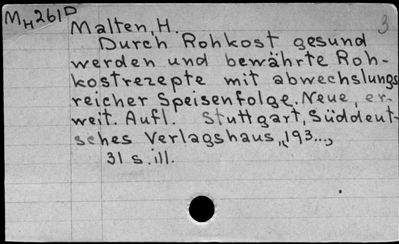 MH261D
3
Malten, H.
Durch Rohkost gesund
werden und bewährte Roh-
kostrezepte mit abwechslungs
reicher Speisenfolge. Neue, er-
weit. Aufl. Stuttgart, Süddeut-
sches Verlagshaus, 193...,
31 s. ill.